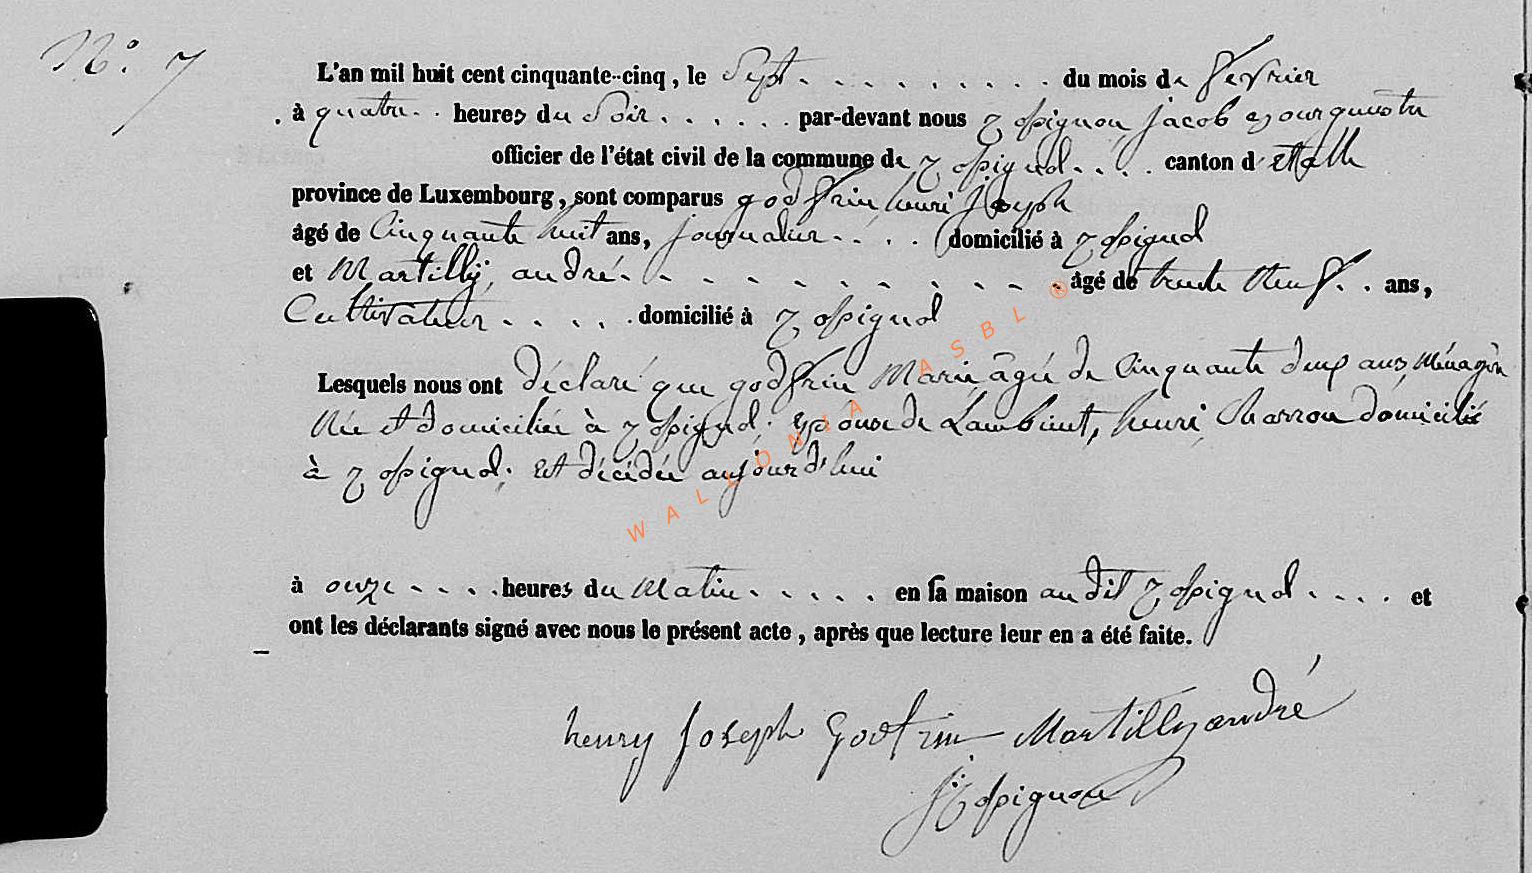 N.º 7
L'an mil huit cent cinquante-cinq, le Sept du mois de fevrier
à quatre heures du Soir par-devant nous Rossignon, Jacob Bourguestre
officier de l'état civil de la commune de Rossignol canton d'Etalle
province de Luxembourg, sont comparus godfrin, henri Joseph
âgé de Cinquante huit ans, journalier domicilié à Rossignol
et Martilly, andré âgé de trente Neuf ans,
Cultivateur domicilié à Rossignol
Lesquels nous ont déclaré que godfrin Marie âgée de Cinquante deux ans, Ménagère
Née et domiciliée à Rossignol. Epouse de Lambinet, henri, Charron domicilié
à Rossignol; Est décédée aujourd'hui
à onze heures du Matin en sa maison au dit Rossignol et
ont les déclarants signé avec nous le présent acte, après que lecture leur en a été faite.
henry Joseph Godfrin Martilly andré
J Rossignon
WALLONIA ASBL ®